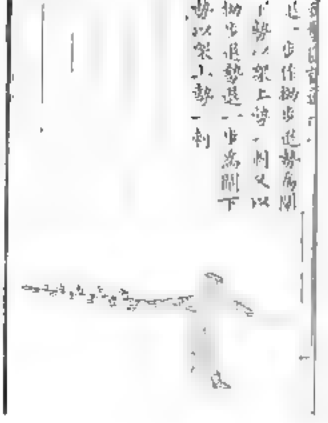 進一步作拗步退勢為開
下勢以架上勢一刺又以
拗步退勢退一步為開下
勢以架上勢一刺